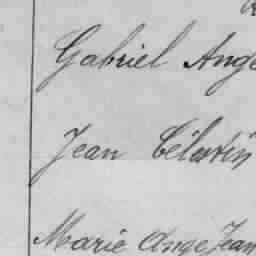 Gabriel Ange
Jean Célestin
Marie Ange Jean